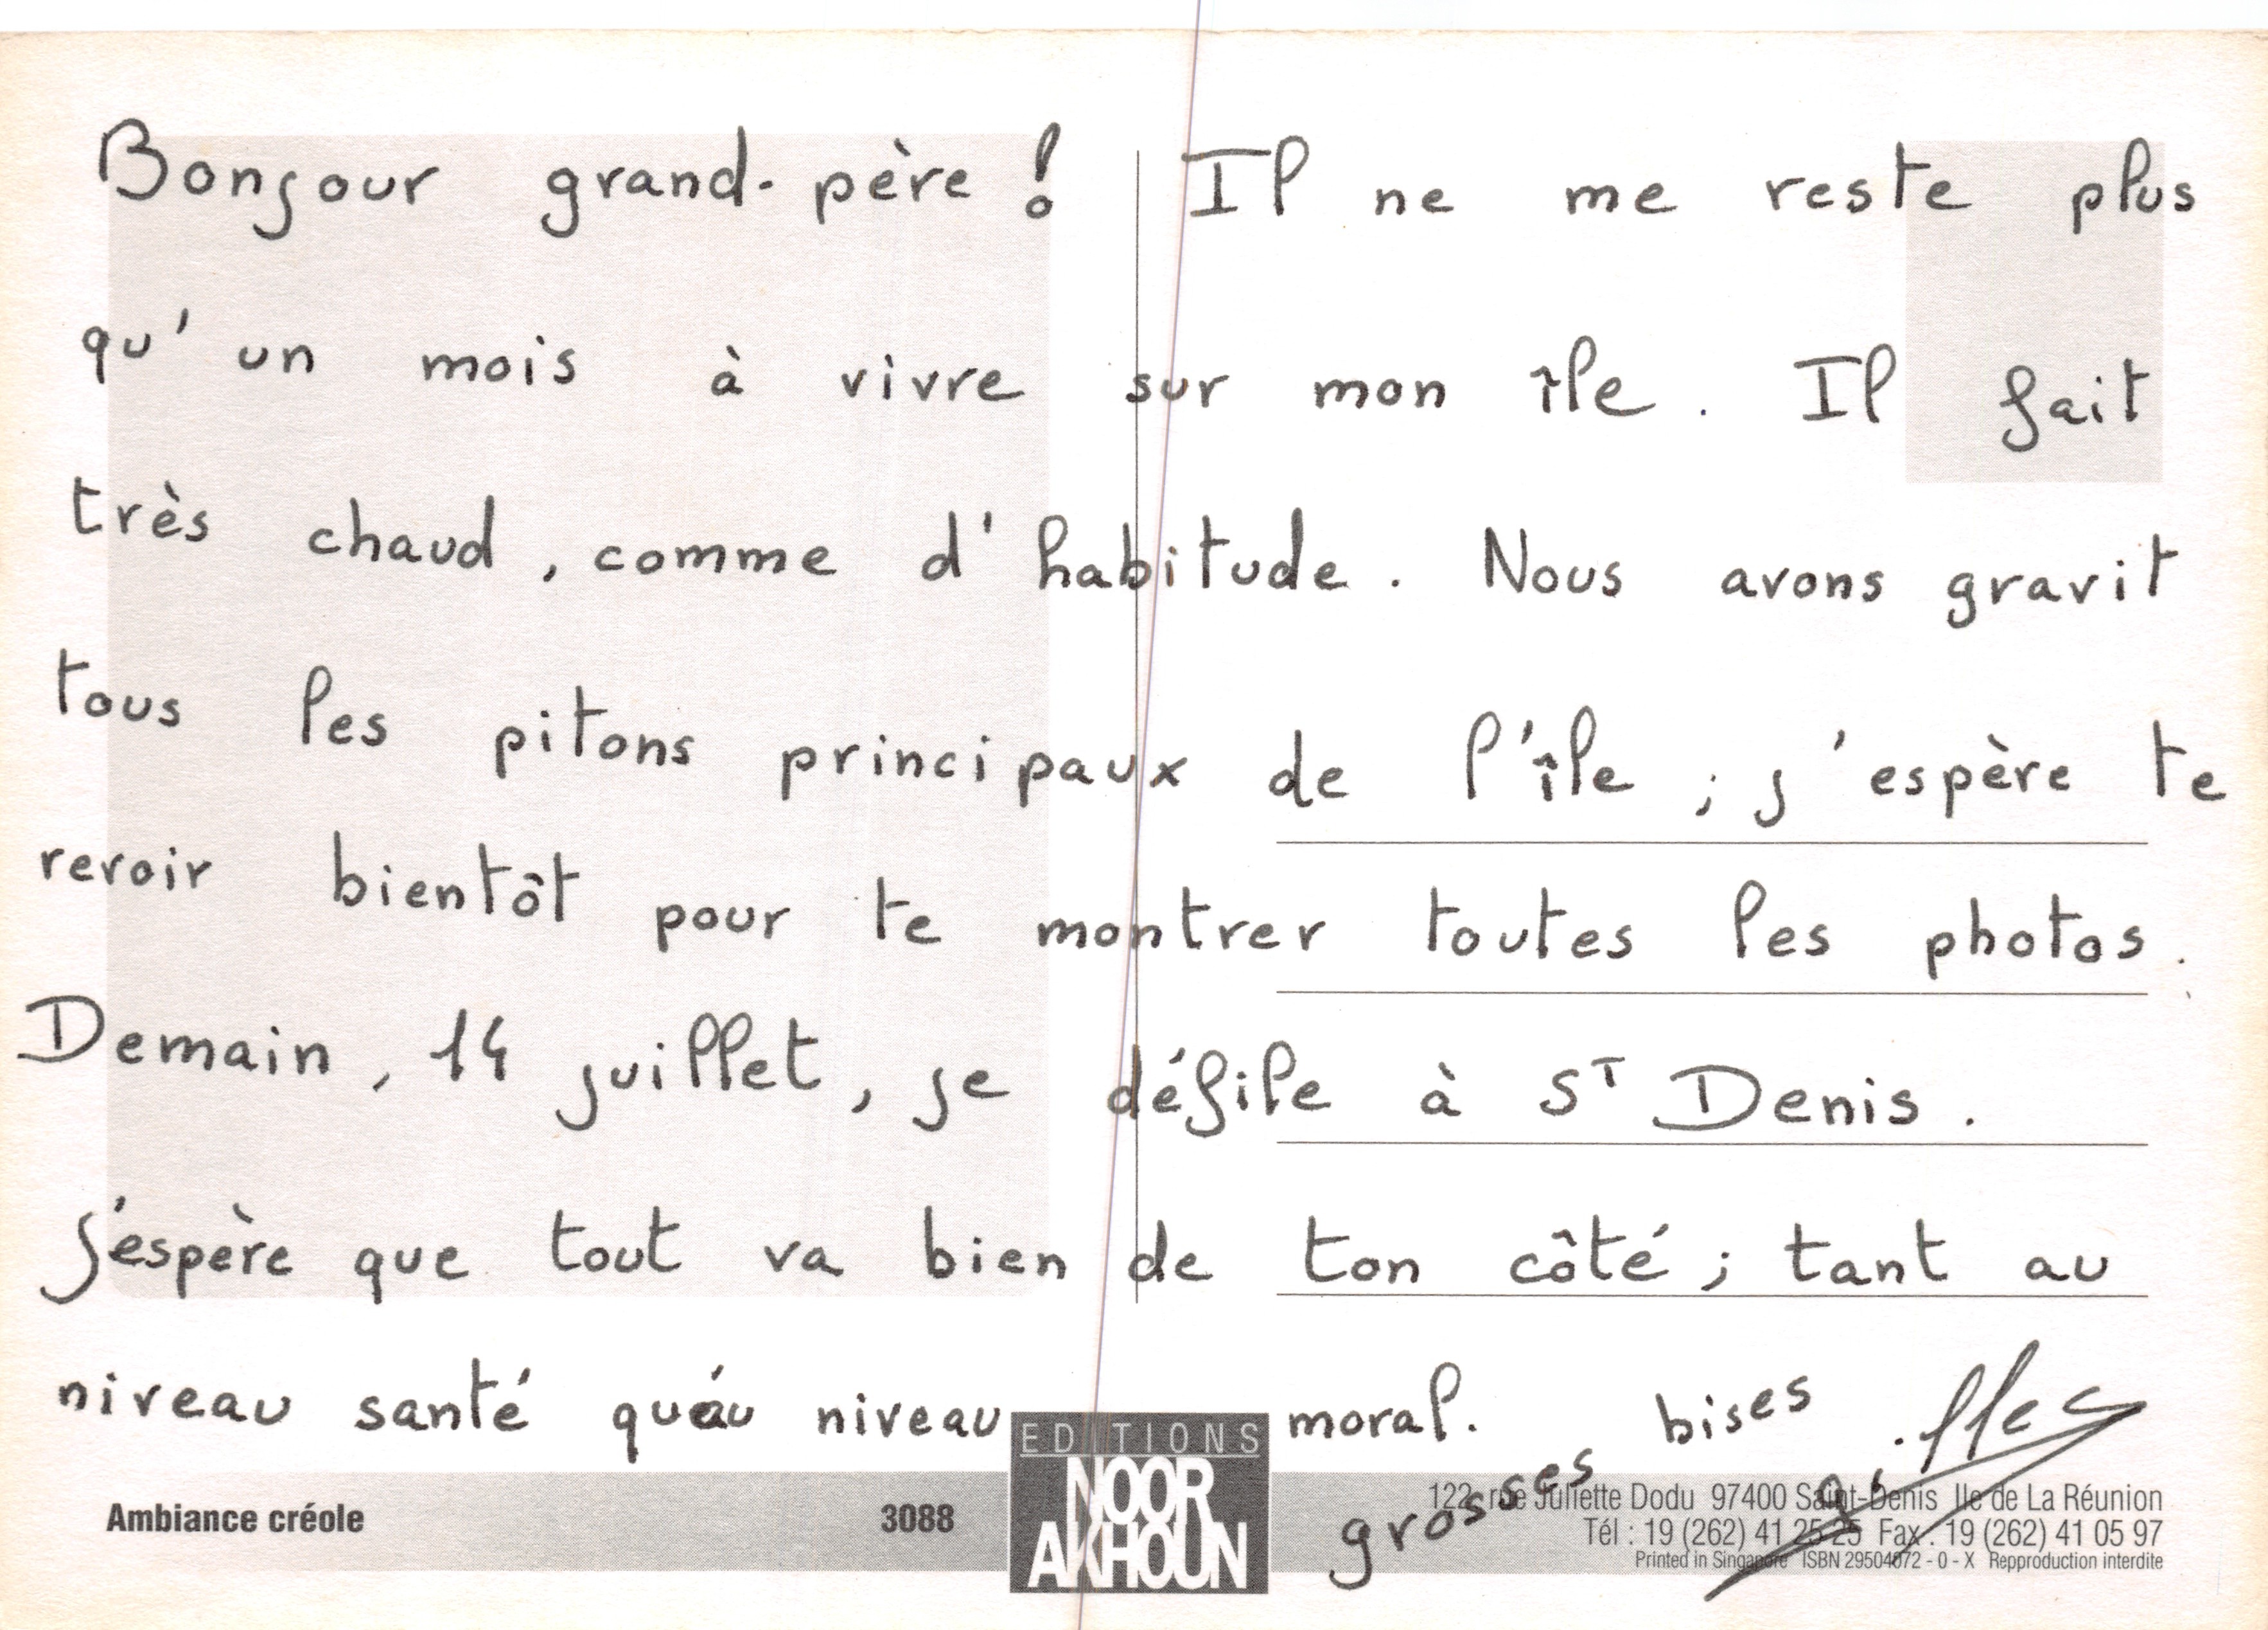 Bonjour grand-père ! Il ne me reste plus
qu'un mois à vivre sur mon île. Il fait
très chaud, comme d'habitude. Nous avons gravit
tous les pitons principaux de l'île ; j'espère te
revoir bientôt pour te montrer toutes les photos.
Demain, 14 juillet, je défile à St Denis.
J'espère que tout va bien de ton côté ; tant au
niveau santé qu'au niveau moral.
grosses bises
gilles
Ambiance créole 3088
EDITIONS
NOOR
AKHOUN
122, rue Juliette Dodu 97400 Saint-Denis Ile de La Réunion
Tél : 19 (262) 41 25 25 Fax : 19 (262) 41 05 97
Printed in Singapore ISBN 29504072 - 0 - X Repproduction interdite